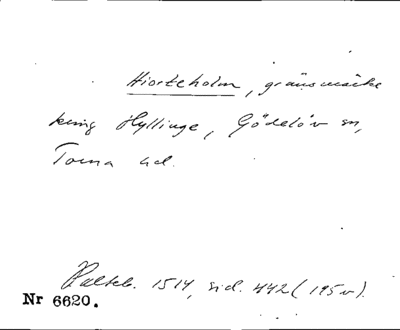 Hiorteholm, gränsmärke
kring Hyllinge, Gödelöv sn,
Torna hd.
Palteb. 1514, sid. 442 (195v).
Nr 6620.